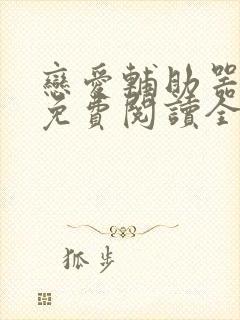 戀愛輔助器
免費閱讀全
狐步